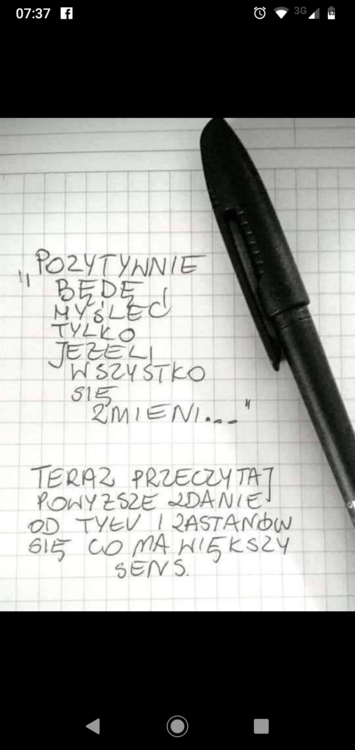 07:37
3G
"POZYTYWNIE
BĘDĘ
MYŚLEĆ
TYLKO
JEŻELI
WSZYSTKO
SIĘ
ZMIENI..."
TERAZ PRZECZYTAJ
POWYŻSZE ZDANIE
OD TYŁU I ZASTANÓW
SIĘ CO MA WIĘKSZY
SENS.